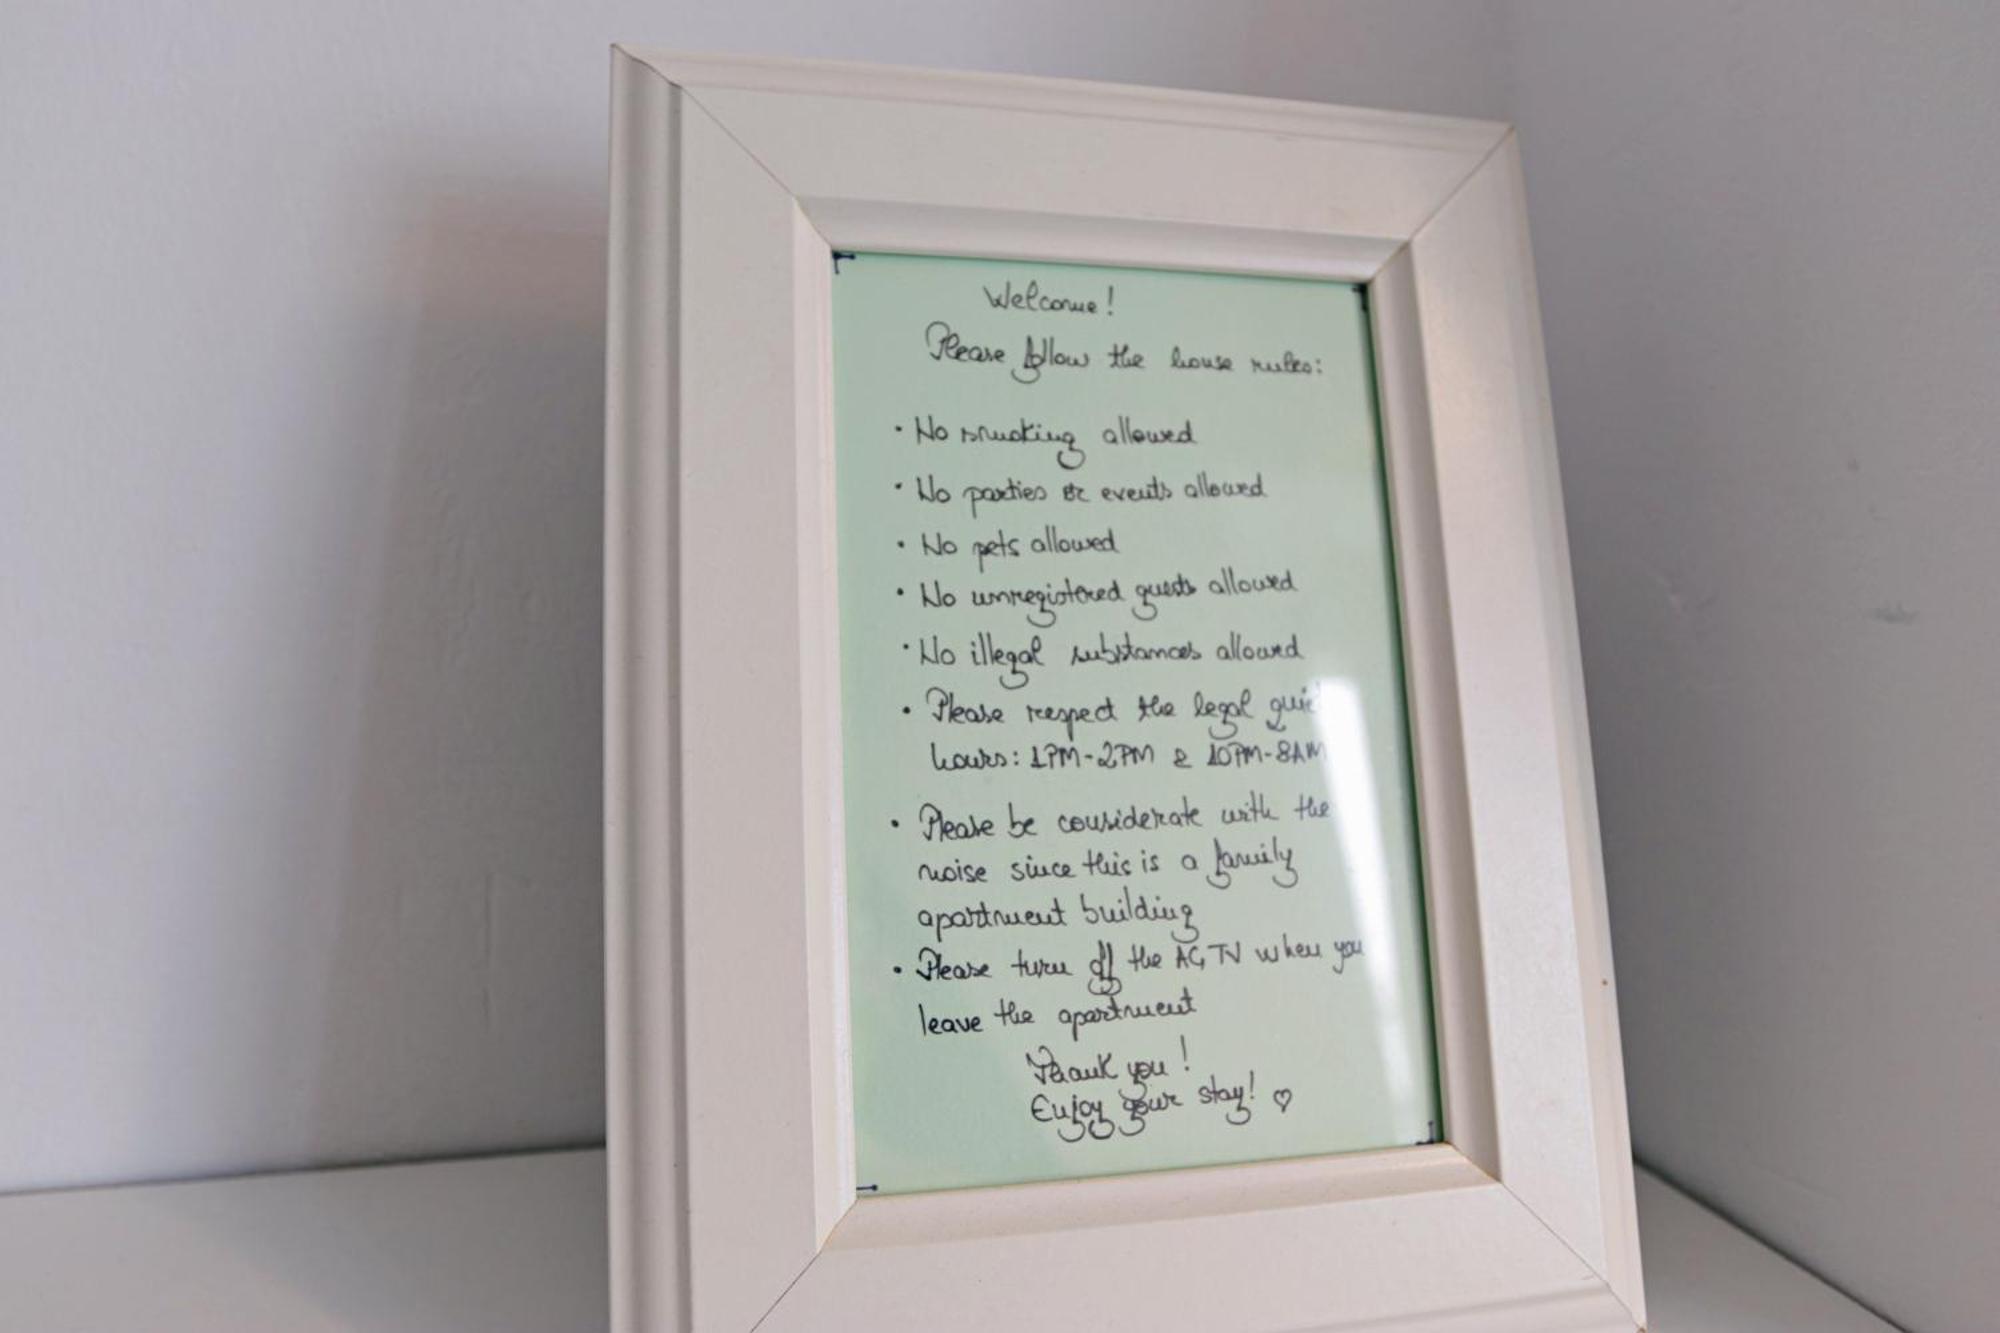 Welcome!
Please follow the house rules:
• No smoking allowed
• No parties or events allowed
• No pets allowed
• No unregistered guests allowed
• No illegal substances allowed
• Please respect the legal quiet
hours: 1PM-2PM & 10PM-8AM
• Please be considerate with the
noise since this is a family
apartment building
• Please turn off the AC, TV when you
leave the apartment
Thank you!
Enjoy your stay! ♡